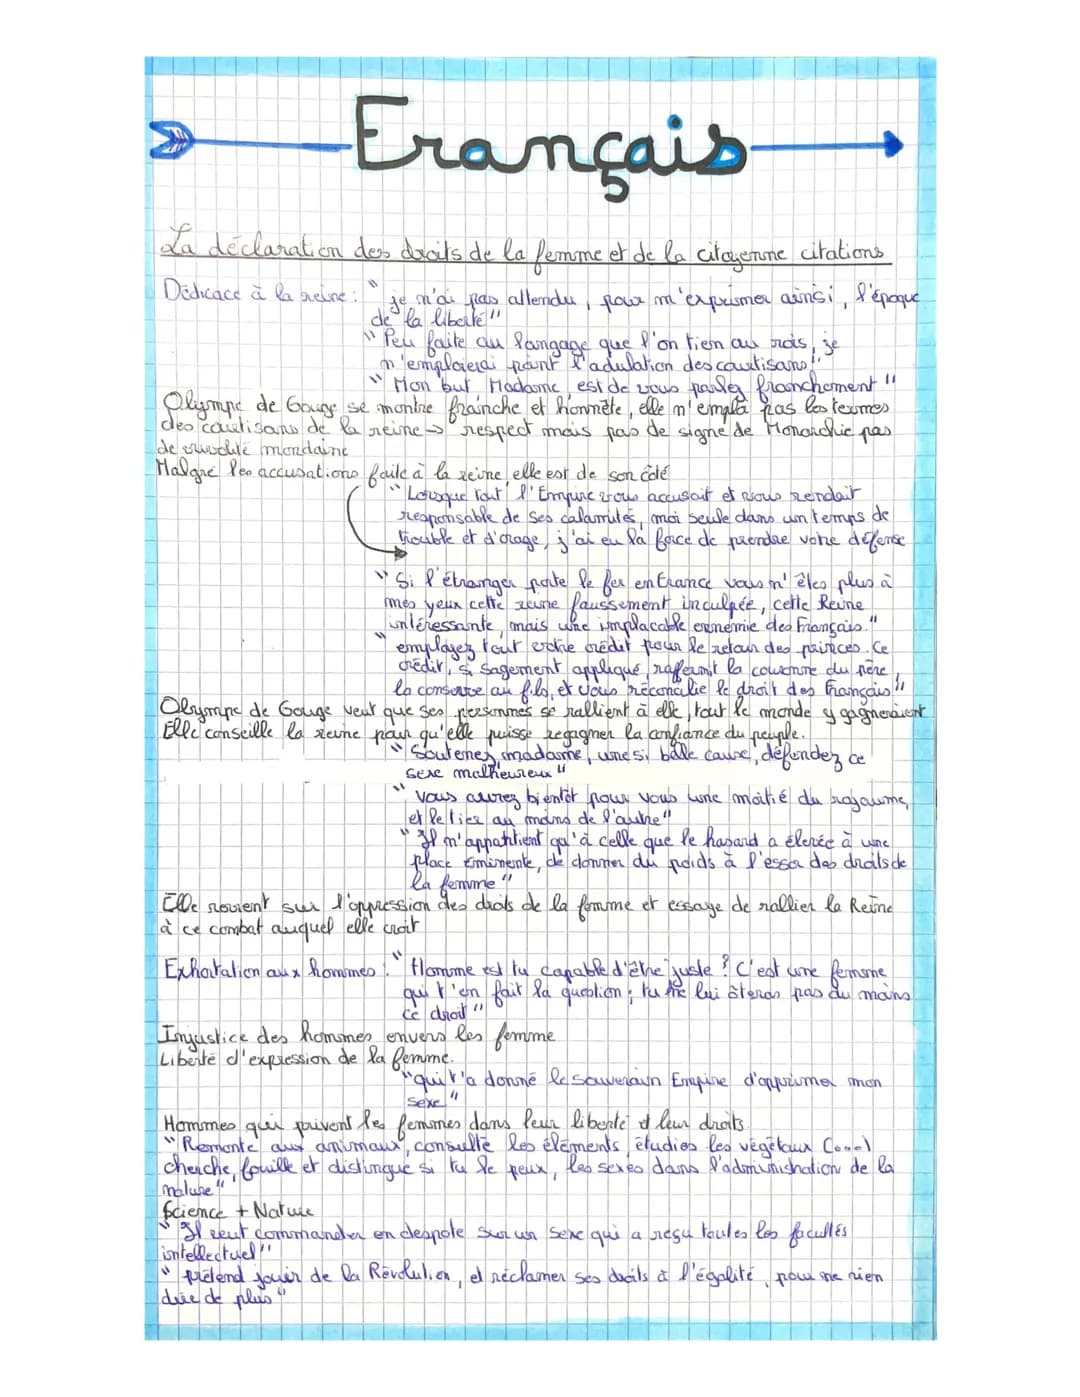 Français
La déclaration des droits de la femme et de la citoyenne citations
Dédicace à la reine : " je n'ai pas attendu, pour m'exprimer ainsi, l'époque
de la liberté"
" Peu faite au langage que l'on tien au rois, je
n'emploierai point l'adulation des courtisans"
" Mon but Madame, est de vous parlez franchement "
Olympe de Gouge se montre frainche et honnête, elle n'empla pas les termes
des courtisans de la reine → respect mais pas de signe de Monarchie pas
de mondaine
Malgré les accusations faite à la reine, elle est de son côté
" Lorsque tout l'Empire vous accusait et vous rendait
responsable de ses calamités, moi seule dans un temps de
trouble et d'orage, j'ai eu la force de prendre votre défense
" Si l'étranger porte le fer en France vous n'êtes plus à
mes yeux cette reine faussement inculpée, cette Reine
intéressante, mais une implacable ennemie des Français."
" employez tout votre crédit pour le retour des princes. Ce
crédit, si sagement appliqué, raffermit la couronne du père,
la conserve au fils, et vous réconcilie le droit des Français"
Olympe de Gouge veut que ses personnes se rallient à elle, tout le monde y gagneraient
Elle conseille la reine pour qu'elle puisse regagner la confiance du peuple.
" Soutenez, madame, une si belle cause, défendez ce
sexe malheureux "
" Vous aurez bientôt pour vous une moitié du royaume,
et le tier au moins de l'autre"
" Il n'appartient qu'à celle que le hasard a élevée à une
place éminente, de donner du poids à l'essor des droits de
la femme "
Elle revient sur l'oppression des droits de la femme et essaye de rallier la Reine
à ce combat auquel elle croit
Exhortation aux hommes : " Homme est tu capable d'être juste ? C'est une femme
qui t'en fait la question ; tu ne lui ôteras pas du moins
ce droit "
Injustice des hommes envers les femme
Liberté d'expression de la femme.
"qui t'a donné le souverain Empire d'opprimer mon
sexe "
Hommes qui privent les femmes dans leur liberté et leur droits
" Remonte aux animaux, consulte les éléments, étudies les végétaux (...)
cherche, fouille et distingue si tu le peux, les sexes dans l'administration de la
nature"
Science + Nature
" Il veut commander en despote sur un sexe qui a reçu toutes les facultés
intellectuel"
" prétend jouir de la Révolution, et réclamer ses droits à l'égalité, pour ne rien
dire de plus "